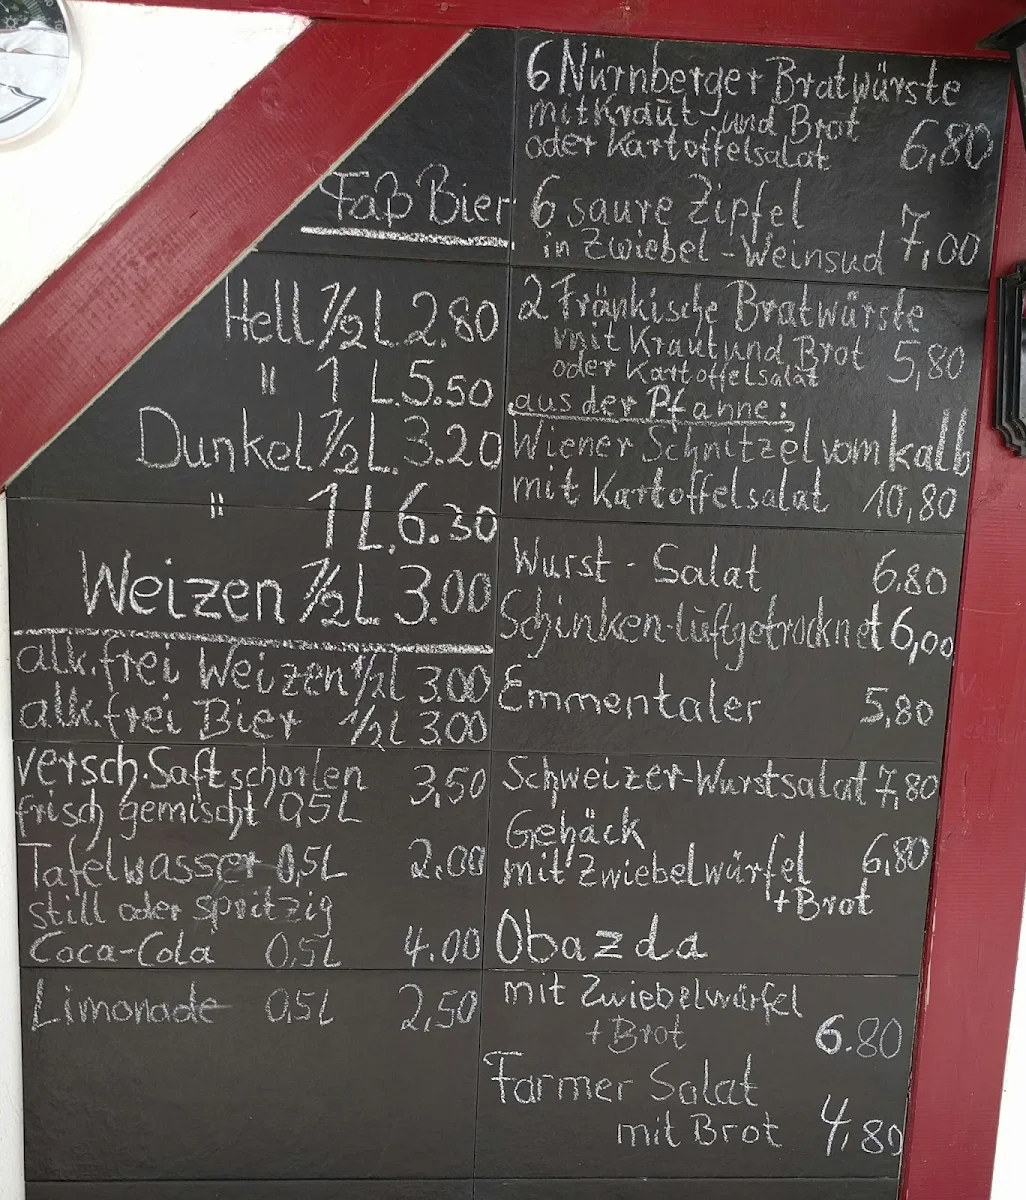 Faß Bier
Hell 1/2 L 2.80
" 1 L. 5.50
Dunkel 1/2 L. 3.20
" 1 L. 6.30
Weizen 1/2 L 3.00
alk.frei Weizen 1/2 l 3.00
alk.frei Bier 1/2 L 3.00
versch. Saftschorlen 3,50
frisch gemischt 0,5L
Tafelwasser 0,5L 2.00
still oder spritzig
Coca-Cola 0,5L 4.00
Limonade 0,5L 2,50
6 Nürnberger Bratwürste
mit Kraut und Brot
oder Kartoffelsalat 6,80
6 saure Zipfel
in Zwiebel-Weinsud 7,00
2 Fränkische Bratwürste
mit Kraut und Brot 5,80
oder Kartoffelsalat
aus der Pfanne:
Wiener Schnitzel vom kalb
mit Kartoffelsalat 10,80
Wurst-Salat 6,80
Schinken-luftgetrocknet 6,00
Emmentaler 5,80
Schweizer-Wurstsalat 7,80
Gehäck
mit Zwiebelwürfel 6,80
+Brot
Obazda
mit Zwiebelwürfel
+Brot 6.80
Farmer Salat
mit Brot 4,80